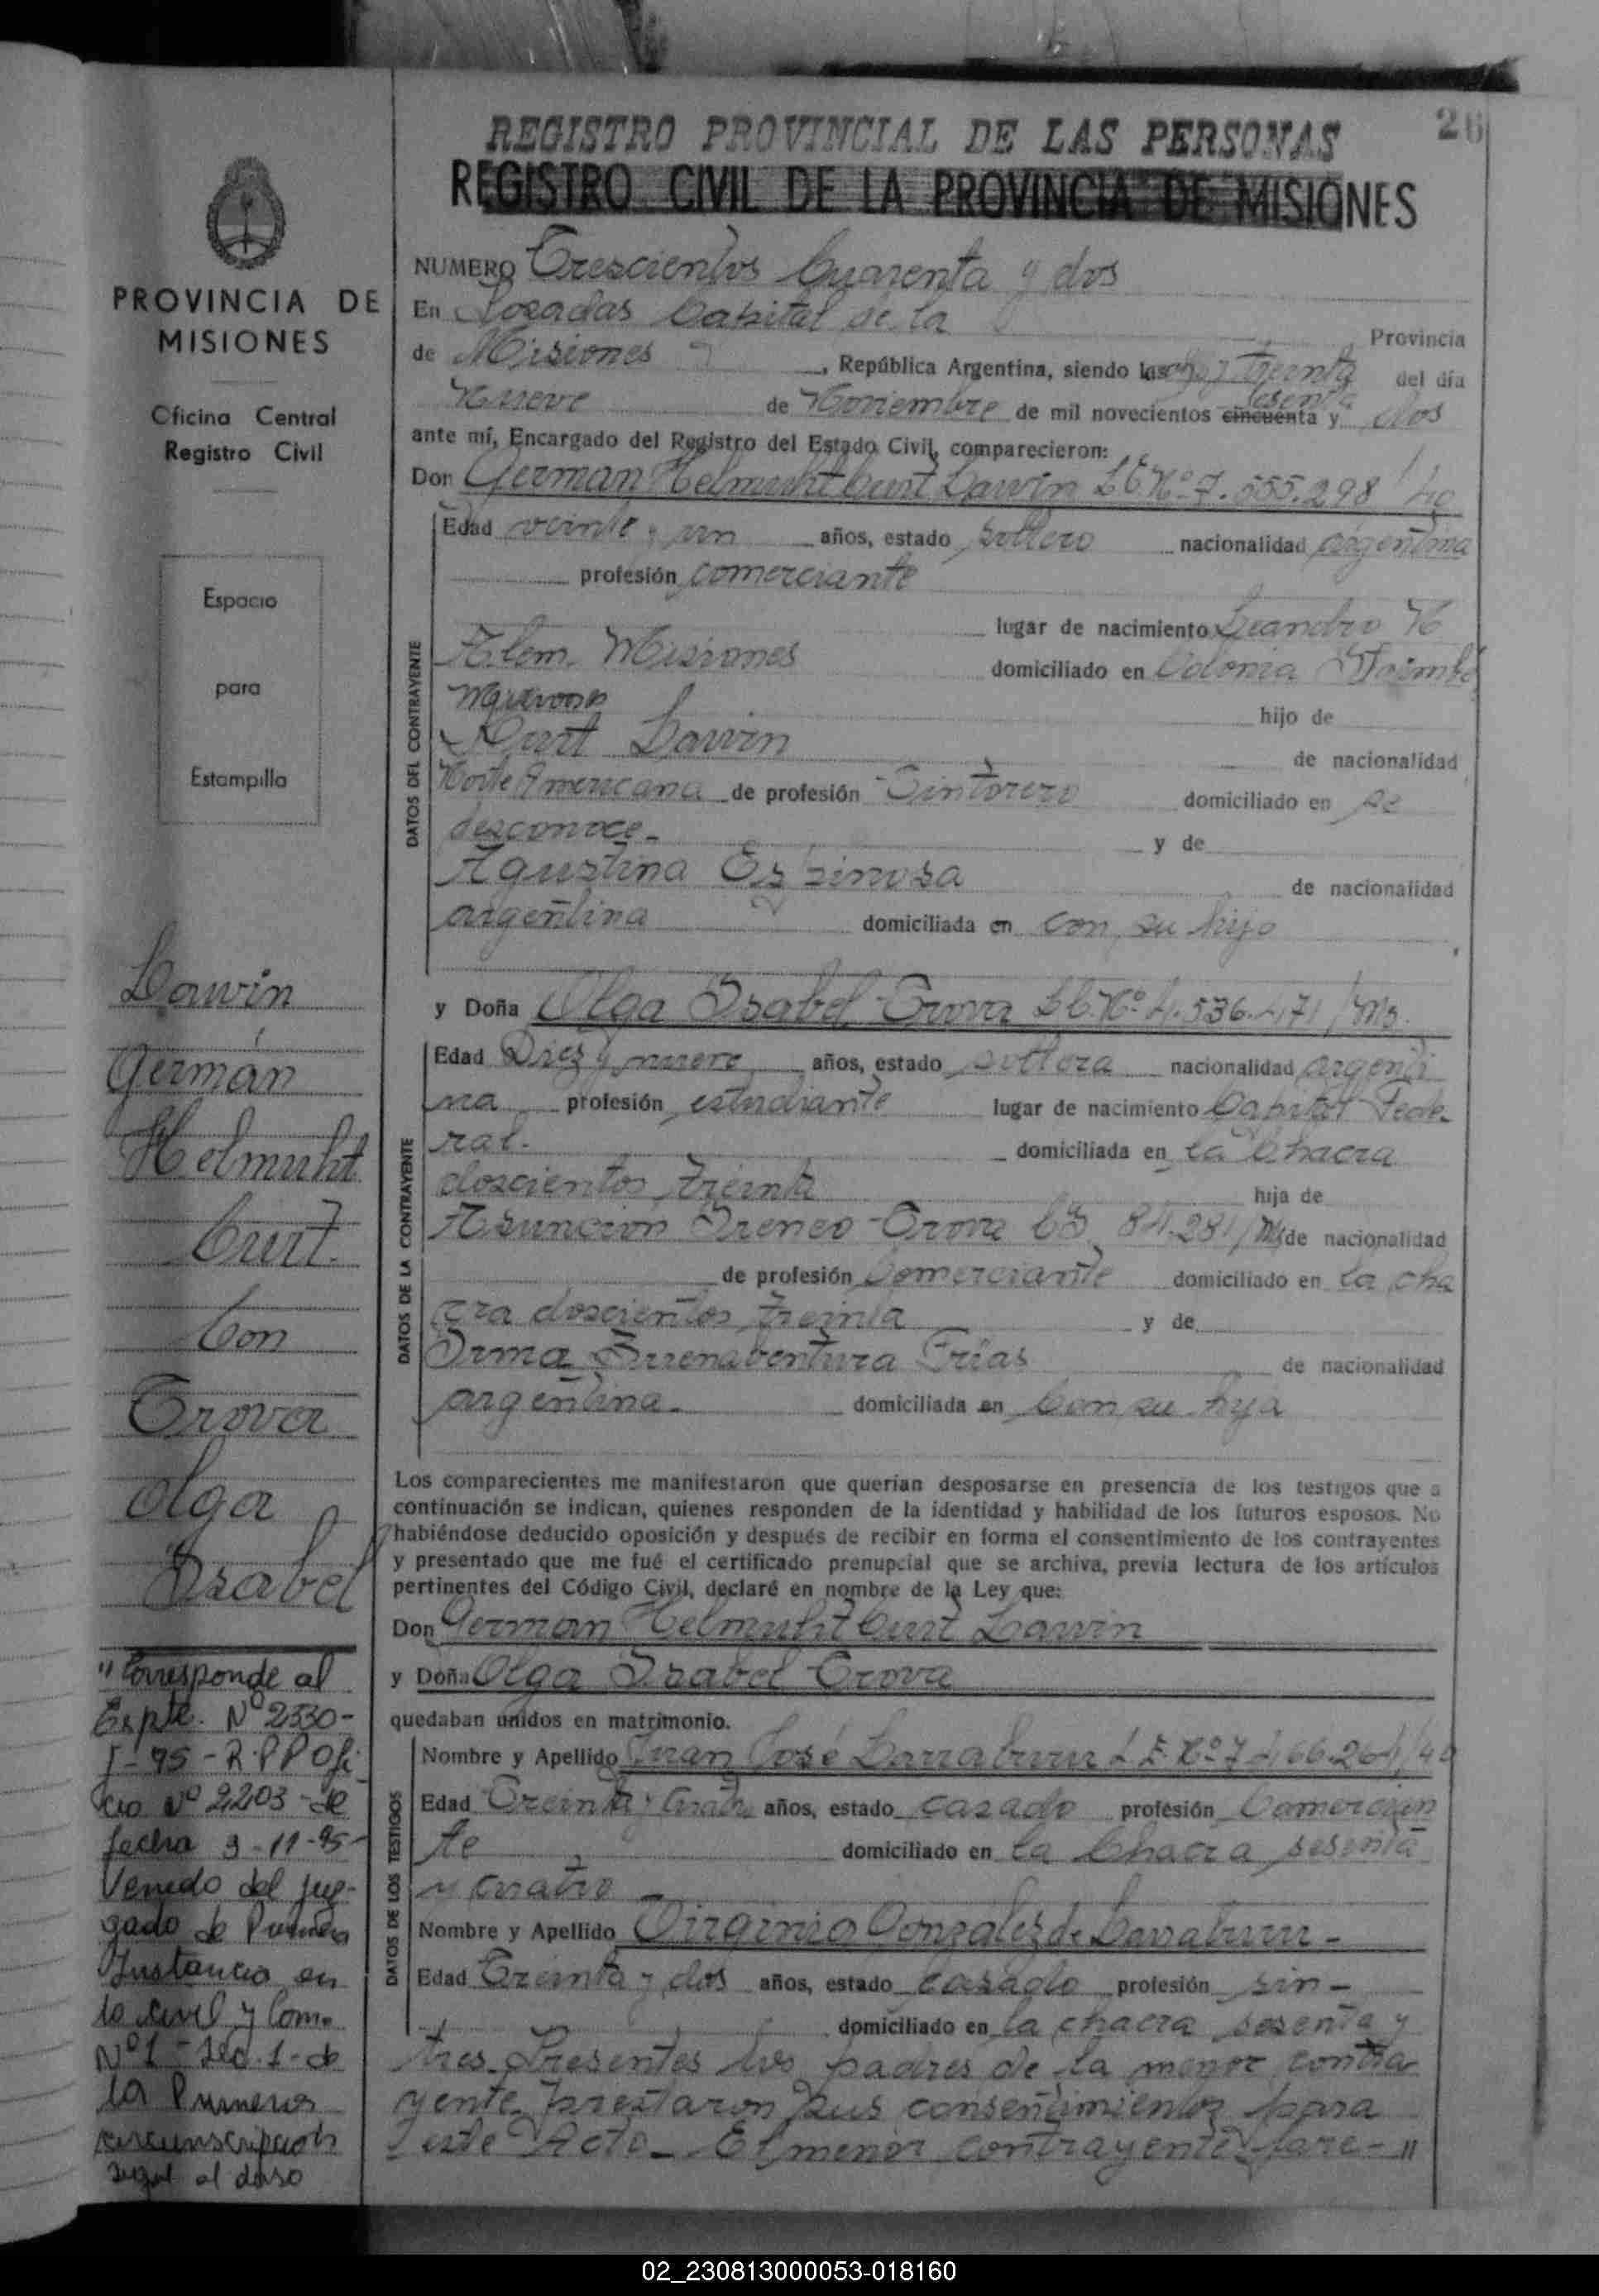 26
REGISTRO PROVINCIAL DE LAS PERSONAS
REGISTRO CIVIL DE LA PROVINCIA DE MISIONES
PROVINCIA DE
MISIONES
Oficina Central
Registro Civil
Espacio
para
Estampilla
Lawin
Germán
Helmuht
Curt.
Con
Trova
Olga
Isabel
"Corresponde al
Expte. Nº 2330-
I-95-R.P.P Ofi-
cio Nº 2203-de
fecha 9-11-95-
Venido del Juz-
gado de Primera
Instancia en
lo Civil y Com.
Nº1-Sec.1-de
la Primera
circunscripción
sigue al dorso
NUMERO Trescientos Cuarenta y dos
En Posadas Capital de la Provincia
de Misiones, República Argentina, siendo las y treinta del día
Nueve de Noviembre de mil novecientos cincuenta y sesenta dos
ante mí, Encargado del Registro del Estado Civil, comparecieron:
Don German Helmuht Curt Lawin L E Nº 7.555.298
DATOS DEL CONTRAYENTE
Edad veinte y un años, estado soltero nacionalidad argentina
profesión comerciante
lugar de nacimiento Leandro N
Alem. Misiones domiciliado en Colonia
hijo de
Kurt Lawin de nacionalidad
Norte Americana de profesión Tintorero domiciliado en se
desconoce.- y de
Agustina Espinosa de nacionalidad
argentina domiciliada en con su hijo
y Doña Olga Isabel Trova L C. Nº 4.536.471/Ms.
DATOS DE LA CONTRAYENTE
Edad Diez y nueve años, estado soltera nacionalidad argenti
na profesión estudiante lugar de nacimiento Capital Fede-
ral.- domiciliada en la Chacra
doscientos treinta hija de
Asuncion Ireneo Trova CI 84.281/Ms de nacionalidad
de profesión Comerciante domiciliado en la cha
cra doscientos treinta y de
Irma Buenaventura Frias de nacionalidad
argentina.- domiciliada en Con su hija
Los comparecientes me manifestaron que querían desposarse en presencia de los testigos que a
continuación se indican, quienes responden de la identidad y habilidad de los futuros esposos. No
habiéndose deducido oposición y después de recibir en forma el consentimiento de los contrayentes
y presentado que me fué el certificado prenupcial que se archiva, previa lectura de los artículos
pertinentes del Código Civil, declaré en nombre de la Ley que:
Don German Helmuht Curt Lawin
y Doña Olga Isabel Trova
quedaban unidos en matrimonio.
DATOS DE LOS TESTIGOS
Nombre y Apellido Juan José Larraburu L.E. Nº 7.466.264/40
Edad Treinta y Cuatro años, estado casado profesión Comercian
te domiciliado en la Chacra sesenta
y cuatro -
Nombre y Apellido Virginia Gonzalez de Larraburu -
Edad Treinta y dos años, estado casado profesión sin -
domiciliado en la chacra sesenta y
tres- Presentes los padres de la menor contra-
yente prestaron sus consentimientos para
este Acto- El menor contrayente pare- "
02_230813000053-018160